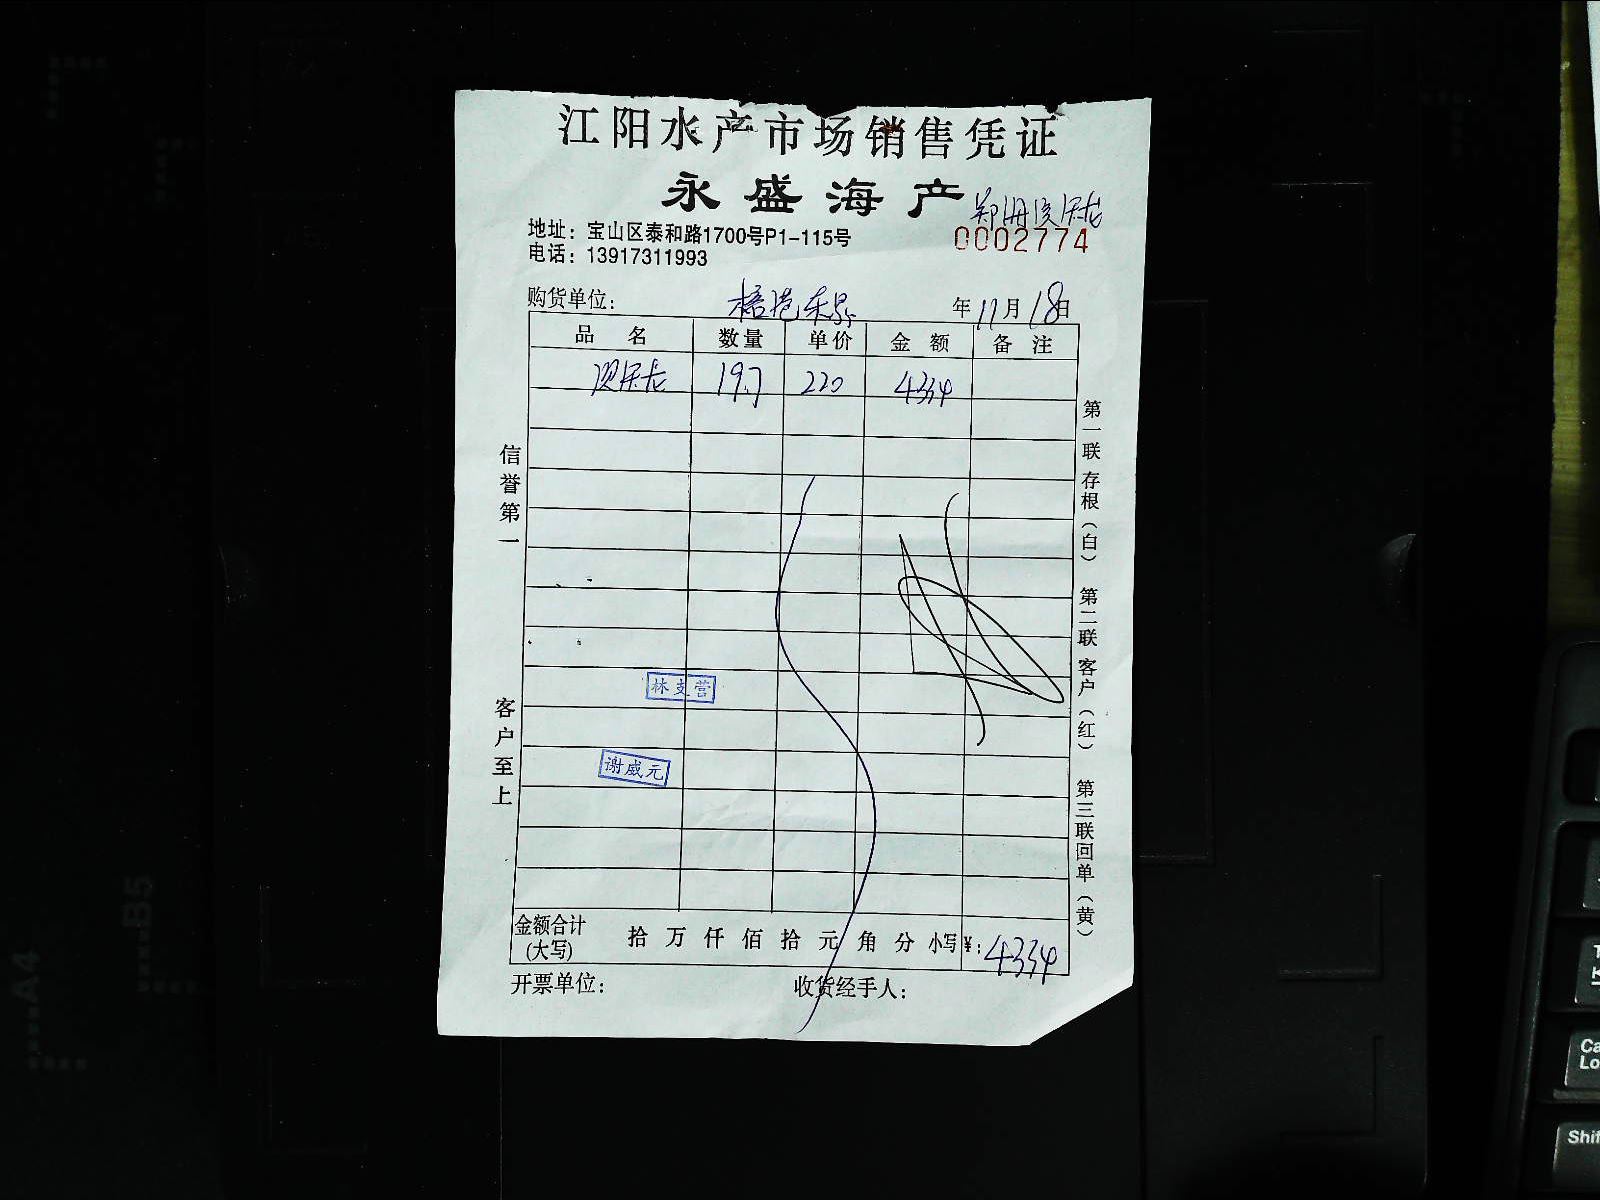 江阳水产市场销售凭证
永盛海产
地址：宝山区泰和路1700号P1-115号
0002774
电话：13917311993
购货单位： 年11月18日
品名 数量 单价 金额 备注
19.7 220 4334
信誉第一
客户至上
第一联存根（白） 第二联客户（红） 第三联回单（黄）
林支营
谢威元
金额合计（大写） 拾 万 仟 佰 拾 元 角 分 小写¥：4334
开票单位： 收货经手人：
A4
B5
Shif